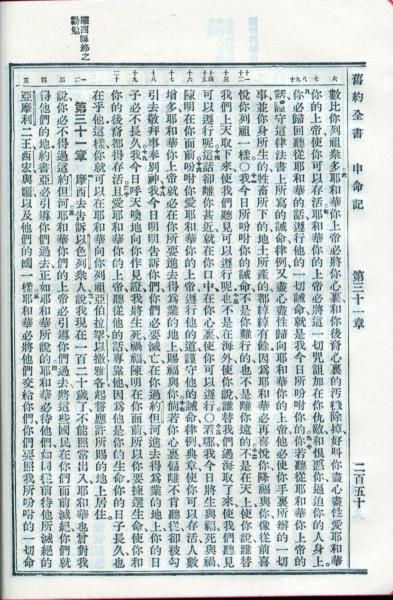 舊約全書 申命記 第三十一章 二百五十
數比你列祖衆多耶和華你上帝必將你心裏和你後裔心裏的汚穢除掉好叫你盡心盡性愛耶和華
你的上帝使你可以存活耶和華你的上帝必將這一切咒詛加在你仇敵和恨惡你逼迫你的人身上
你必歸回聽從耶和華的話遵行他的一切誡命就是我今日所吩咐你的你若聽從耶和華你上帝的
話謹守這律法書上所寫的誡命律例又盡心盡性歸向耶和華你的上帝他必使你手裏所辦的一切
事並你身所生的牲畜所下的地上所產的都綽綽有餘因爲耶和華必再喜悅你降福與你像從前喜
悅你列祖一樣○我今日所吩咐你的誡命不是你難行的也不是離你遠的不是在天上使你說誰替
我們上天取下來使我們聽見可以遵行呢也不是在海外使你說誰替我們過海取了來使我們聽見
可以遵行呢這話卻離你甚近就在你口中在你心裏使你可以遵行○看哪我今日將生與福死與禍
陳明在你面前吩咐你愛耶和華你的上帝遵行他的道謹守他的誡命律例典章使你可以存活人數
增多耶和華你上帝就必在你所要進去得爲業的地上賜福與你倘若你心裏偏離不肯聽從卻被勾
引去敬拜事奉別神我今日明明告訴你們你們必要滅亡在你過約但河進去得爲業的地上你的日
子必不長久我今日呼天喚地向你作見證我將生死禍福陳明在你面前所以你要揀選生命使你和
你的後裔都得存活且愛耶和華你的上帝聽從他的話專靠他因爲他是你的生命你的日子長久也
在乎他這樣你就可以在耶和華向你列祖亞伯拉罕以撒雅各起誓應許所賜的地上居住
第三十一章 摩西去告訴以色列衆人說我現在一百二十歲了不能照常出入耶和華也曾對我
說你必不得過這約但河耶和華你們的上帝必引導你們過去將這些國民在你們面前滅絕你們就
得他們的地約書亞必引導你們過去正如耶和華所說的耶和華必待他們如同從前待他所滅絕的
亞摩利二王西宏與噩以及他們的國一樣耶和華必將他們交給你們你們要照我所吩咐的一切命
摩西臨終之
勸勉